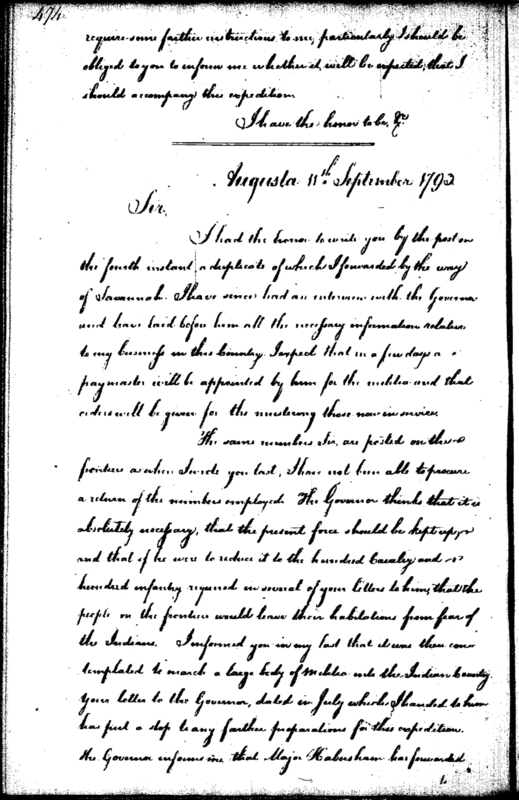 474
require some farther instructions to me, particularly I should be
obliged to you to inform me whether it will be expected, that I
should accompany this expedition
I have the honor to be, &c
Augusta 11th September 1793
Sir,
I had the honor to write you by the post on
the fourth instant, a duplicate of which I forwarded by the way
of Savannah. I have since had an interview with the Governor
and have laid before him all the necessary information relative
to my business in this Country. I expect that in a few days a
paymaster will be appointed by him for the militia and that
orders will be given for the mustering those now in service.
The same numbers Sir, are posted on the
frontiers as when I wrote you last, I have not been able to procure
a return of the numbers employed. The Governor thinks that it is
absolutely necessary, that the present force should be kept up,
and that if he were to reduce it to the hundred Cavalry and
hundred infantry required in several of your letters to him, that the
people on the frontiers would leave their habitations from fear of
the Indians. I informed you in my last that it was then con
templated to march a large body of Militia into the Indian Country.
Your letter to the Governor, dated in July which I handed to him
has put a stop to any farther preparations for this expedition.
The Governor informs me that Major Habersham has forwarded